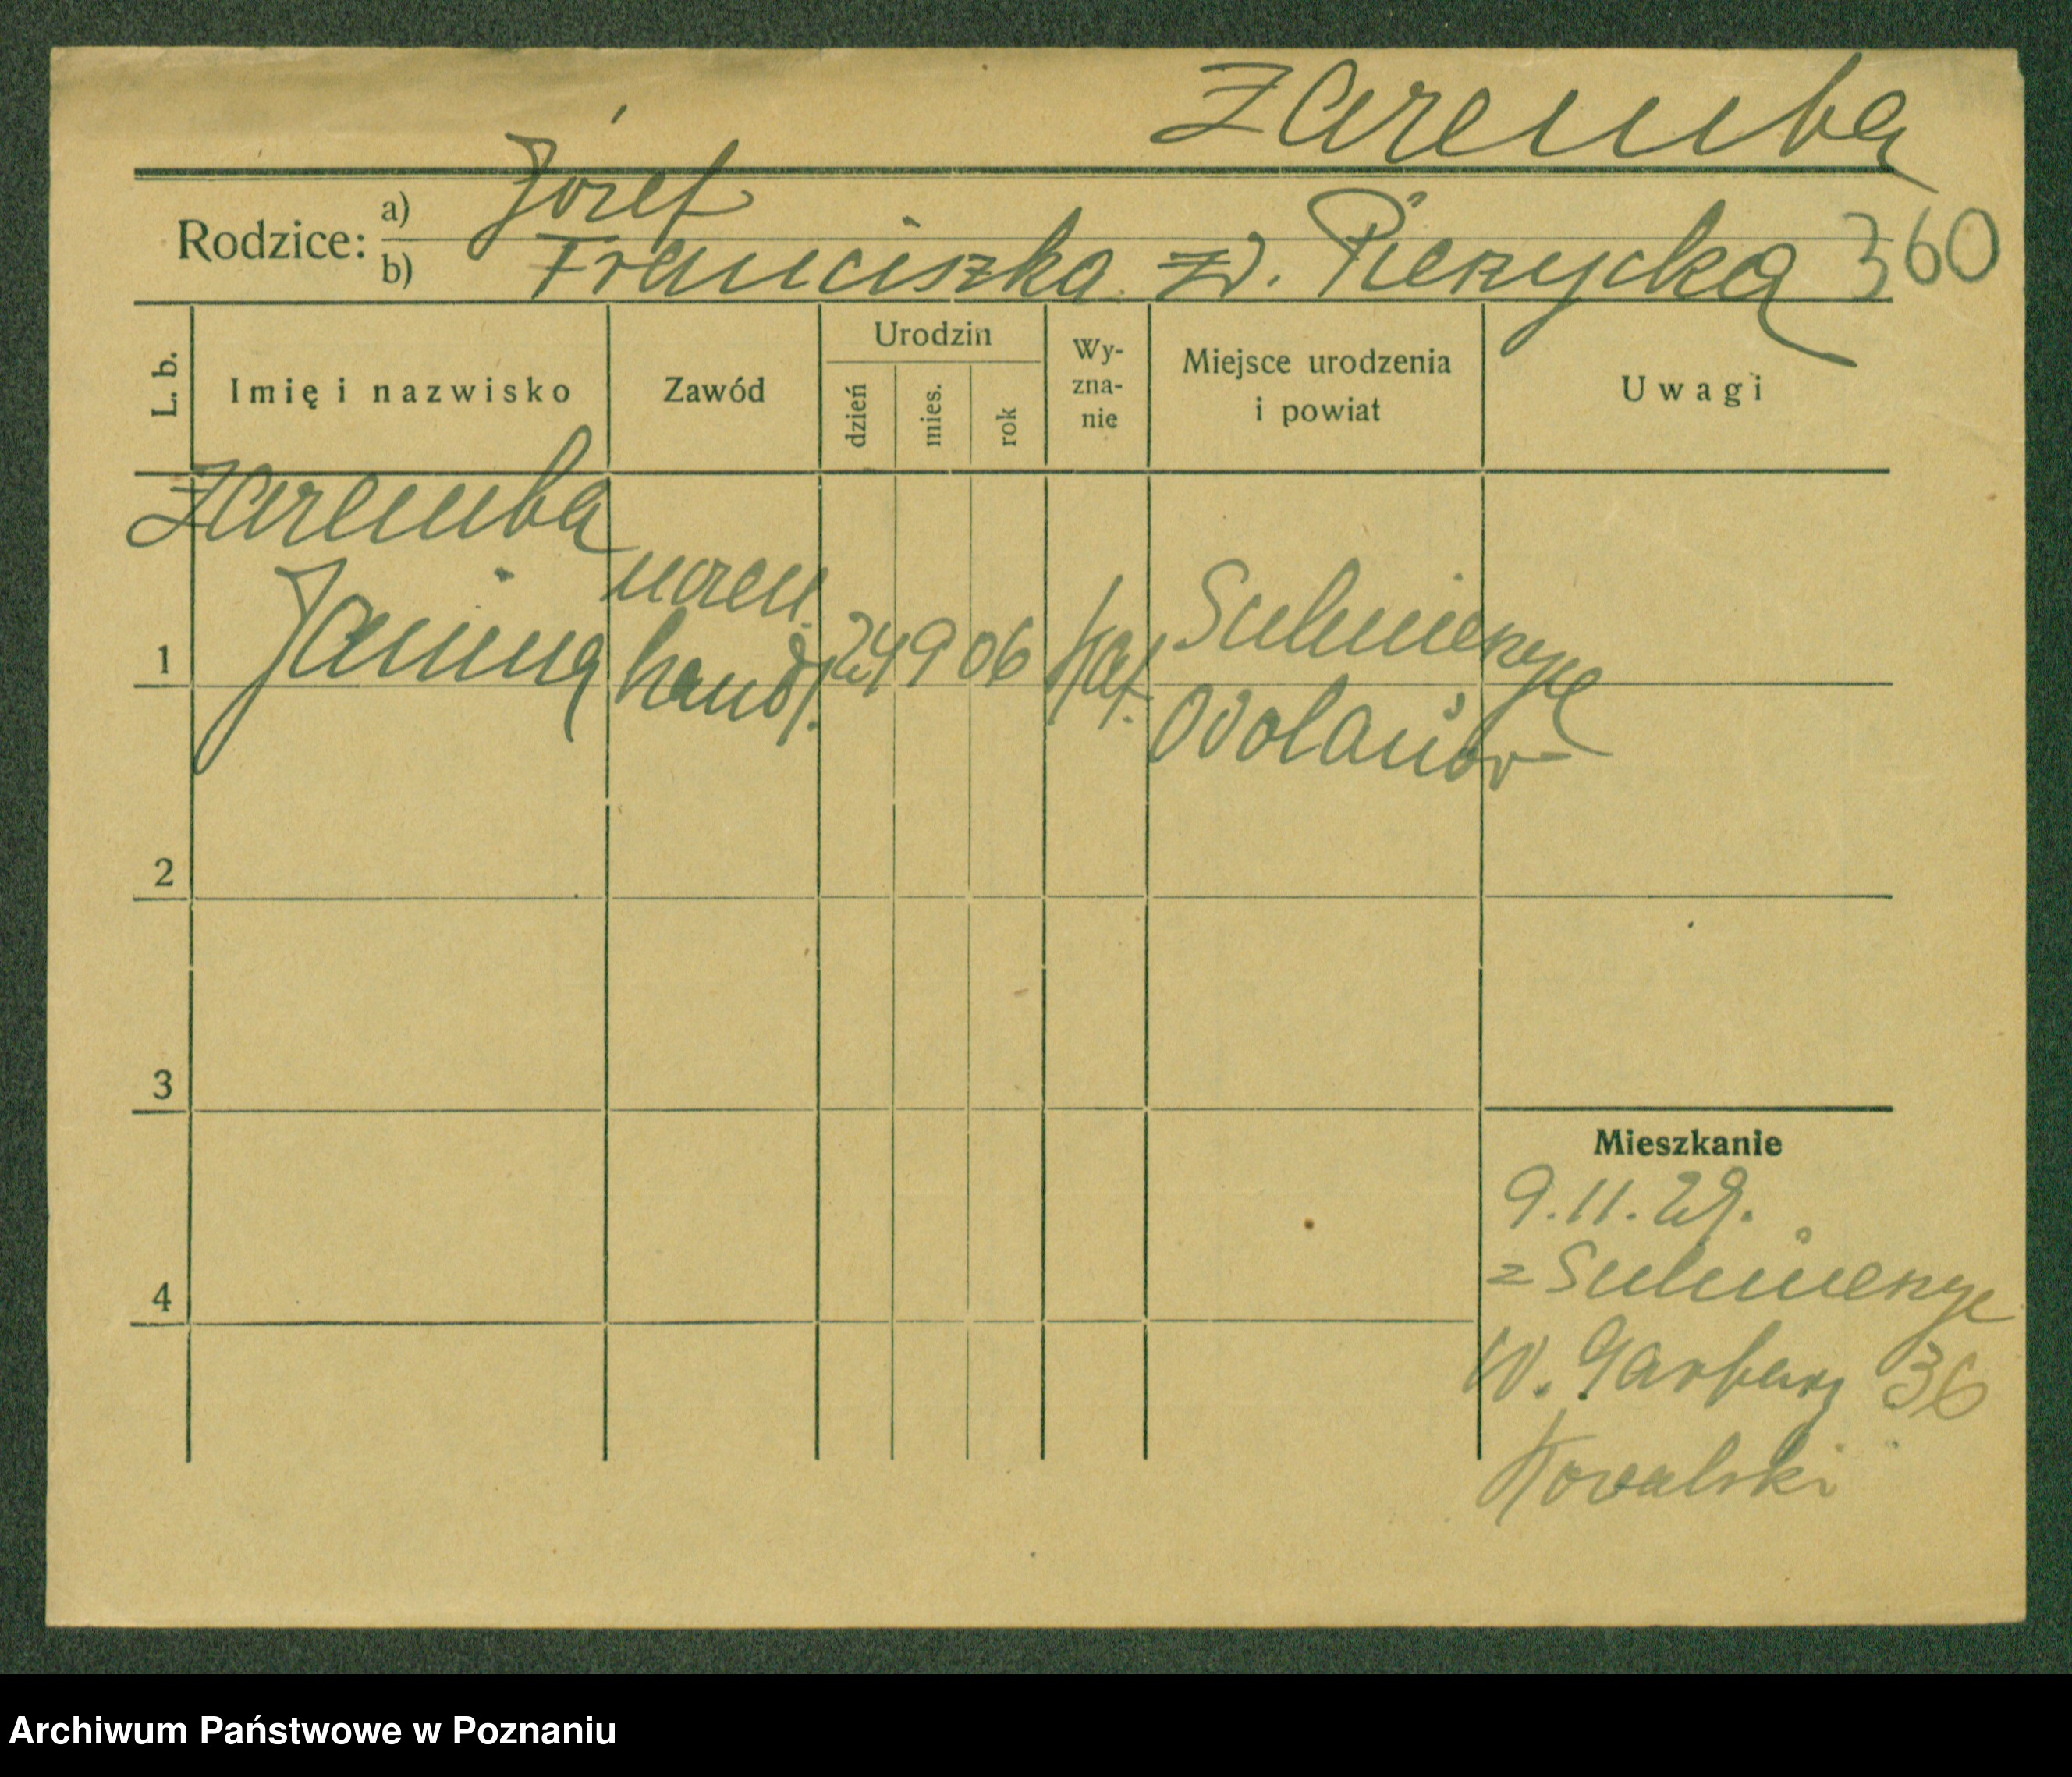 Zaremba
Rodzice: a) Józef
b) Franciszka zd. Pierzycka 360
L. b. Imię i nazwisko Zawód Urodzin dzień mies. rok Wy-zna-nie Miejsce urodzenia i powiat Uwagi
Zaremba
1 Janina uczen. handl. 24 9 06 kat. Sulmierzyce
Odolanów
2
3
4
Mieszkanie
9.11.29.
z Sulmierzyc
W. Garbary 36
Kowalski
Archiwum Państwowe w Poznaniu